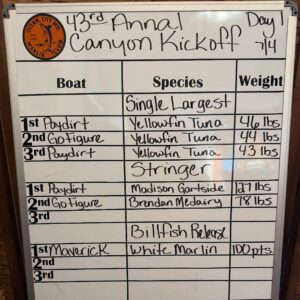 OCEAN CITY MD
MARLIN CLUB
43rd Annal
Canyon Kickoff
Day 1
7/4
Boat Species Weight
Single Largest
1st Paydirt Yellowfin Tuna 46 lbs
2nd Go Figure Yellowfin Tuna 44 lbs
3rd Paydirt Yellowfin Tuna 43 lbs
Stringer
1st Paydirt Madison Gartside 127 lbs
2nd Go Figure Brendan Medairy 78 lbs
3rd
Billfish Release
1st Maverick White Marlin 100 pts
2nd
3rd